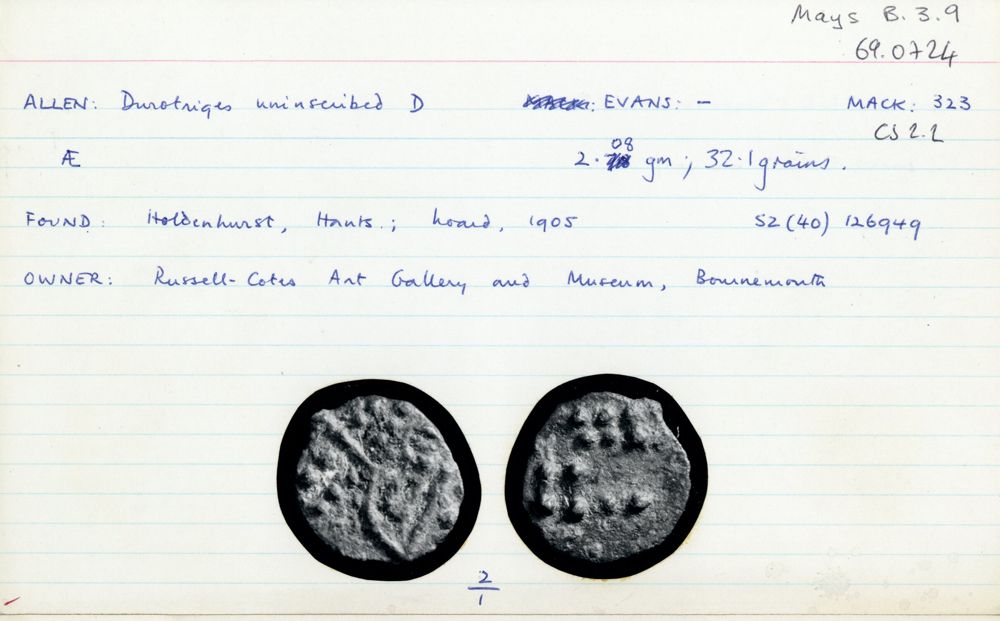 Mays B.3.9
69.0724
ALLEN: Durotriges uninscribed D EVANS: – MACK: 323
CS 2.2
Æ 2.08 gm; 32.1 grains.
FOUND: Holdenhurst, Hants.; hoard, 1905 SZ (40) 126949
OWNER: Russell-Cotes Art Gallery and Museum, Bournemouth
2
1